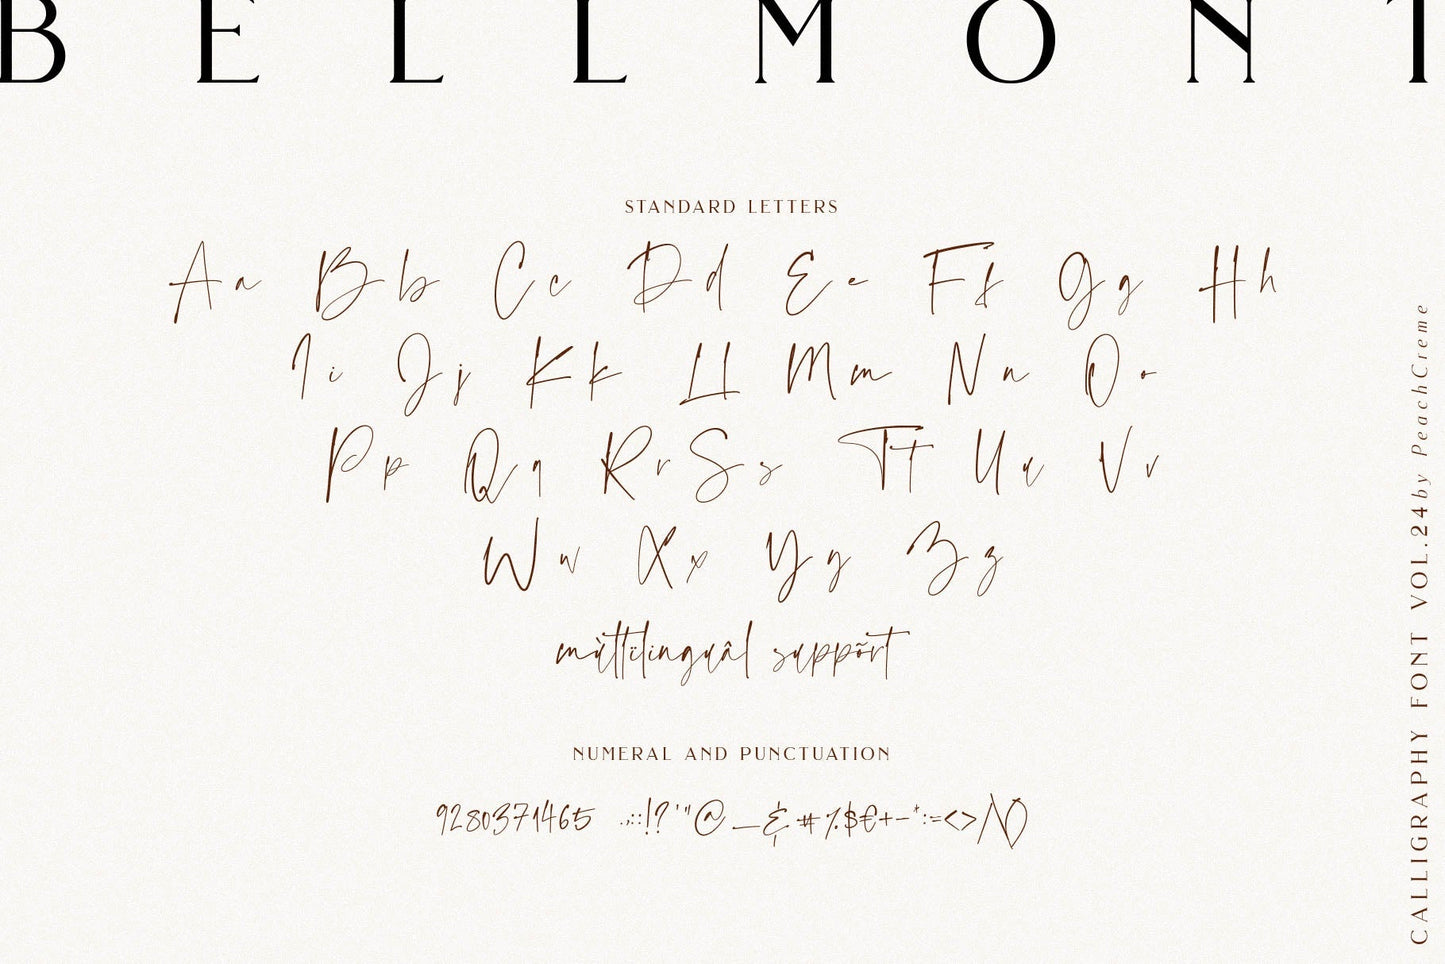 BELLMONT
STANDARD LETTERS
Aa Bb Cc Dd Ee Ff Gg Hh
Ii Jj Kk Ll Mm Nn Oo
Pp Qq Rr Ss Tt Uu Vv
Ww Xx Yy Zz
mùttïlinguâl suppõrt
NUMERAL AND PUNCTUATION
9280371465 .,:;!?'"@_&#%$€+-*:=<>/\()
CALLIGRAPHY FONT VOL.24 by PeachCreme